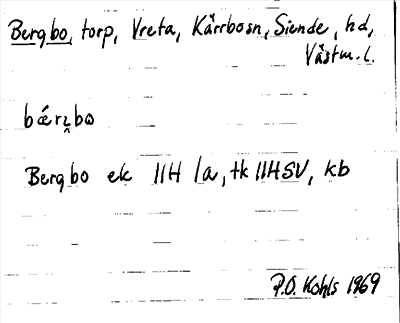 Bergbo, torp, Vreta, Kärrbosn, Siende, hd,
Västm. l.
bǽrı̯bo
Bergbo ek 11H 1a, tk 11HSV, kb
P.O. Kohls 1969